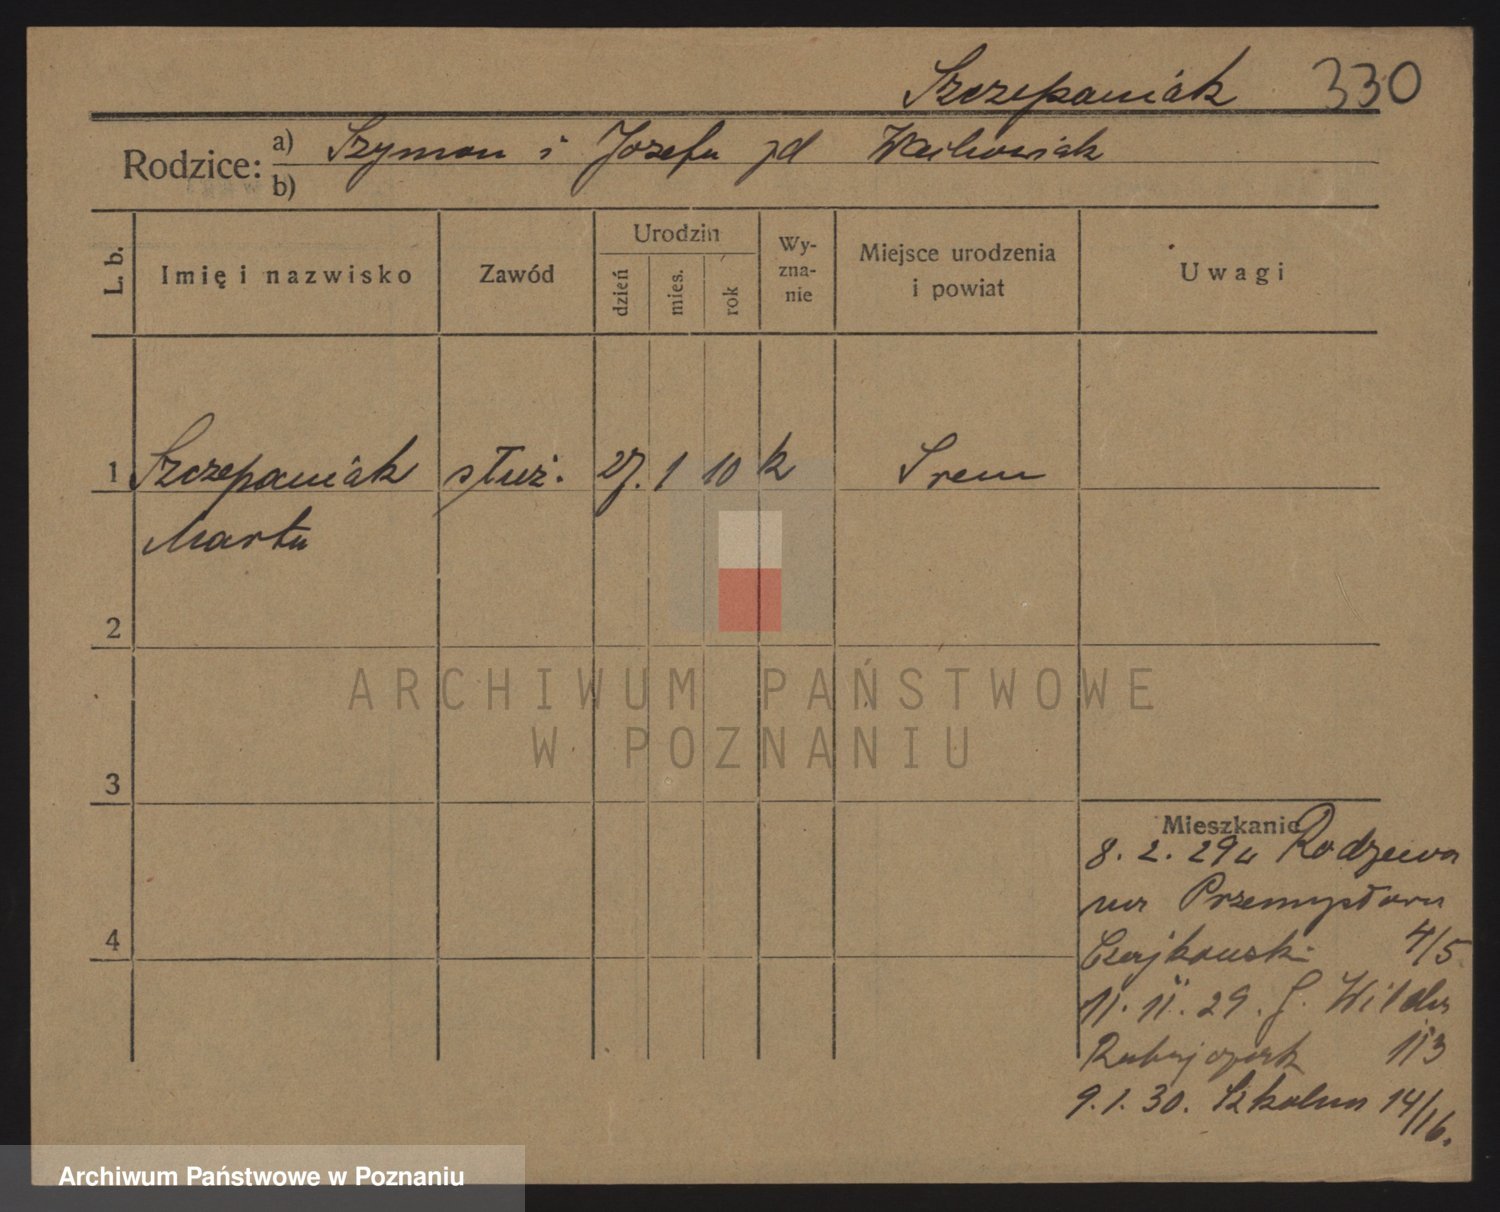 Szczepaniak 330
Rodzice: a) Szymon i Józefa zd
b)
L. b. Imię i nazwisko Zawód Urodzin dzień mies. rok Wy-zna-nie Miejsce urodzenia i powiat Uwagi
1 Szczepaniak służ. 27. 1 10 k Srem
Marta
2
ARCHIWUM PAŃSTWOWE
W POZNANIU
3
Mieszkanie
8. 2. 29
na Przemysłowa
4 Czajkowski 4/5
11. 11. 29. G. Wilda
113
9. 1. 30. Szkolna 14/16.
Archiwum Państwowe w Poznaniu